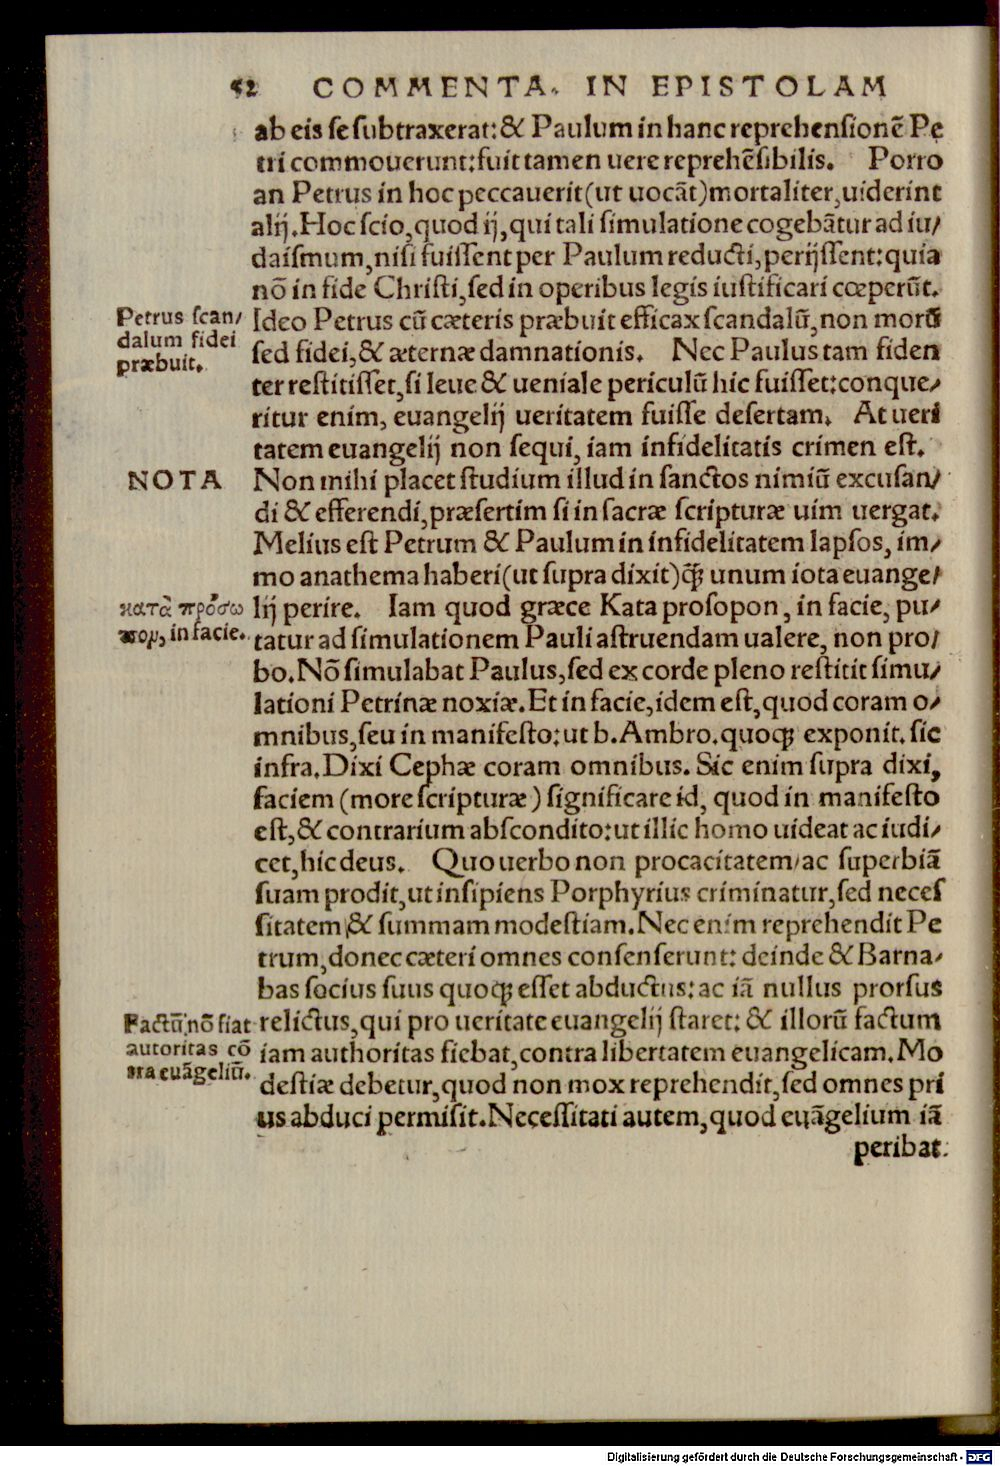 52 COMMENTA. IN EPISTOLAM
ab eis se subtraxerat:& Paulum in hanc reprehensionē Pe
tri commouerunt:fuit tamen uere reprehēsibilis. Porro
an Petrus in hoc peccauerit(ut uocāt)mortaliter,uiderint
alij.Hoc scio,quod ij,qui tali simulatione cogebātur ad iu/
daismum,nisi fuissent per Paulum reducti,perijssent:quia
nō in fide Christi,sed in operibus legis iustificari cœperūt.
Petrus scan/
dalum fidei
præbuit.
Ideo Petrus cū cæteris præbuit efficax scandalū,non morū
sed fidei,& æternæ damnationis. Nec Paulus tam fiden
ter restitisset,si leue & ueniale periculū hic fuisset:conque/
ritur enim, euangelij ueritatem fuisse desertam. At ueri
tatem euangelij non sequi, iam infidelitatis crimen est.
NOTA
Non mihi placet studium illud in sanctos nimiū excusan/
di & efferendi,præsertim si in sacræ scripturæ uim uergat.
Melius est Petrum & Paulum in infidelitatem lapsos, im/
mo anathema haberi(ut supra dixit)ꝙ̃ unum iota euange/
κατὰ πρόσω
πον, in facie.
lij perire. Iam quod græce Kata prosopon, in facie, pu/
tatur ad simulationem Pauli astruendam ualere, non pro/
bo.Nō simulabat Paulus,sed ex corde pleno restitit simu/
lationi Petrinæ noxiæ.Et in facie,idem est,quod coram o/
mnibus,seu in manifesto:ut b.Ambro.quoqꝫ exponit. sic
infra.Dixi Cephæ coram omnibus. Sic enim supra dixi,
faciem (more scripturæ) significare id, quod in manifesto
est,& contrarium abscondito:ut illic homo uideat ac iudi/
cet,hic deus. Quo uerbo non procacitatem/ac superbiā
suam prodit,ut insipiens Porphyrius criminatur,sed neces
sitatem & summam modestiam.Nec enim reprehendit Pe
trum,donec cæteri omnes consenserunt: deinde & Barna/
bas socius suus quoqꝫ esset abductus:ac iā nullus prorsus
Factū,nō fiat
autoritas cō
tra euāgeliū.
relictus,qui pro ueritate euangelij staret: & illorū factum
iam authoritas fiebat,contra libertatem euangelicam.Mo
destiæ debetur,quod non mox reprehendit,sed omnes pri
us abduci permisit.Necessitati autem,quod euāgelium iā
peribat.
Digitalisierung gefördert durch die Deutsche Forschungsgemeinschaft - DFG